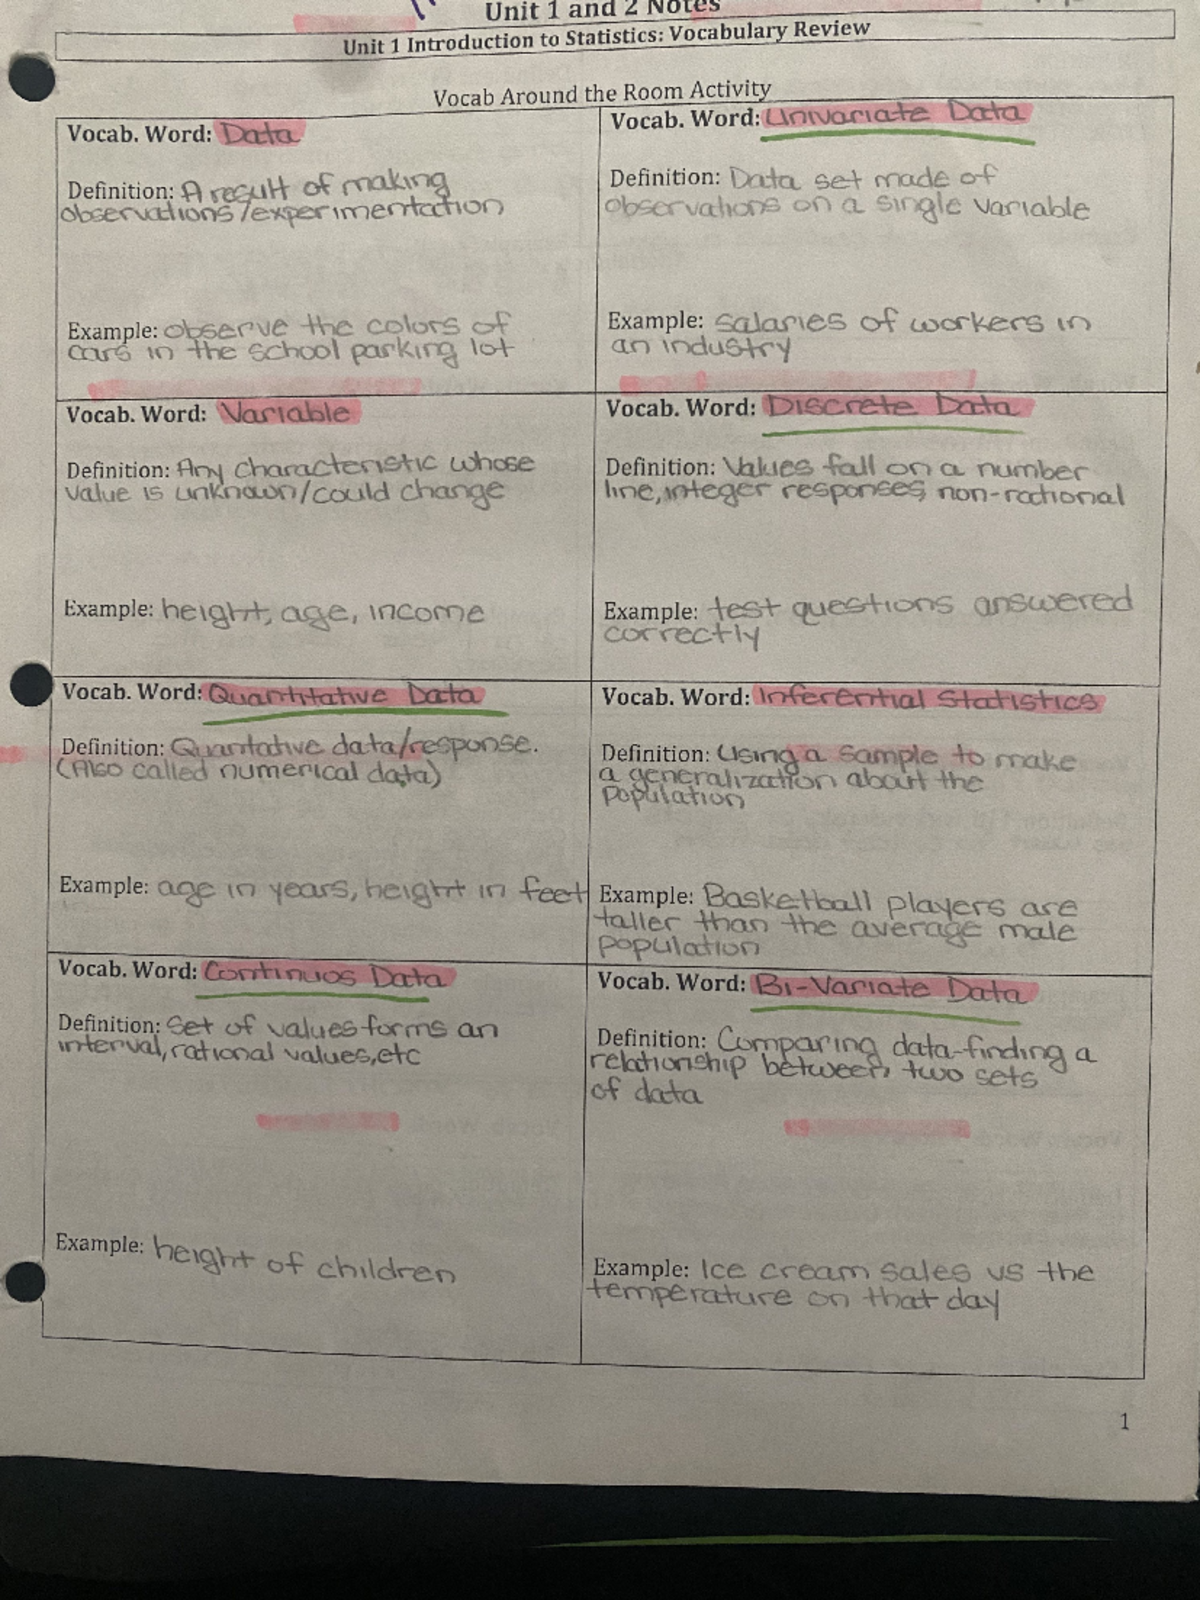 Unit 1 and 2 Notes
Unit 1 Introduction to Statistics: Vocabulary Review
Vocab Around the Room Activity
Vocab. Word: Data
Definition: A result of making
observations/experimentation
Example: observe the colors of
cars in the school parking lot
Vocab. Word: Univariate Data
Definition: Data set made of
observations on a single variable
Example: salaries of workers in
an industry
Vocab. Word: Variable
Definition: Any characteristic whose
value is unknown/could change
Example: height, age, income
Vocab. Word: Discrete Data
Definition: Values fall on a number
line, integer responses, non-rational
Example: test questions answered
correctly
Vocab. Word: Quantitative Data
Definition: Quantative data/response.
(Also called numerical data)
Example: age in years, height in feet
Vocab. Word: Inferential Statistics
Definition: Using a sample to make
a generalization about the
population
Example: Basketball players are
taller than the average male
population
Vocab. Word: Continuos Data
Definition: Set of values forms an
interval, rational values, etc
Example: height of children
Vocab. Word: Bi-Variate Data
Definition: Comparing data-finding a
relationship between two sets
of data
Example: Ice cream sales vs the
temperature on that day
1